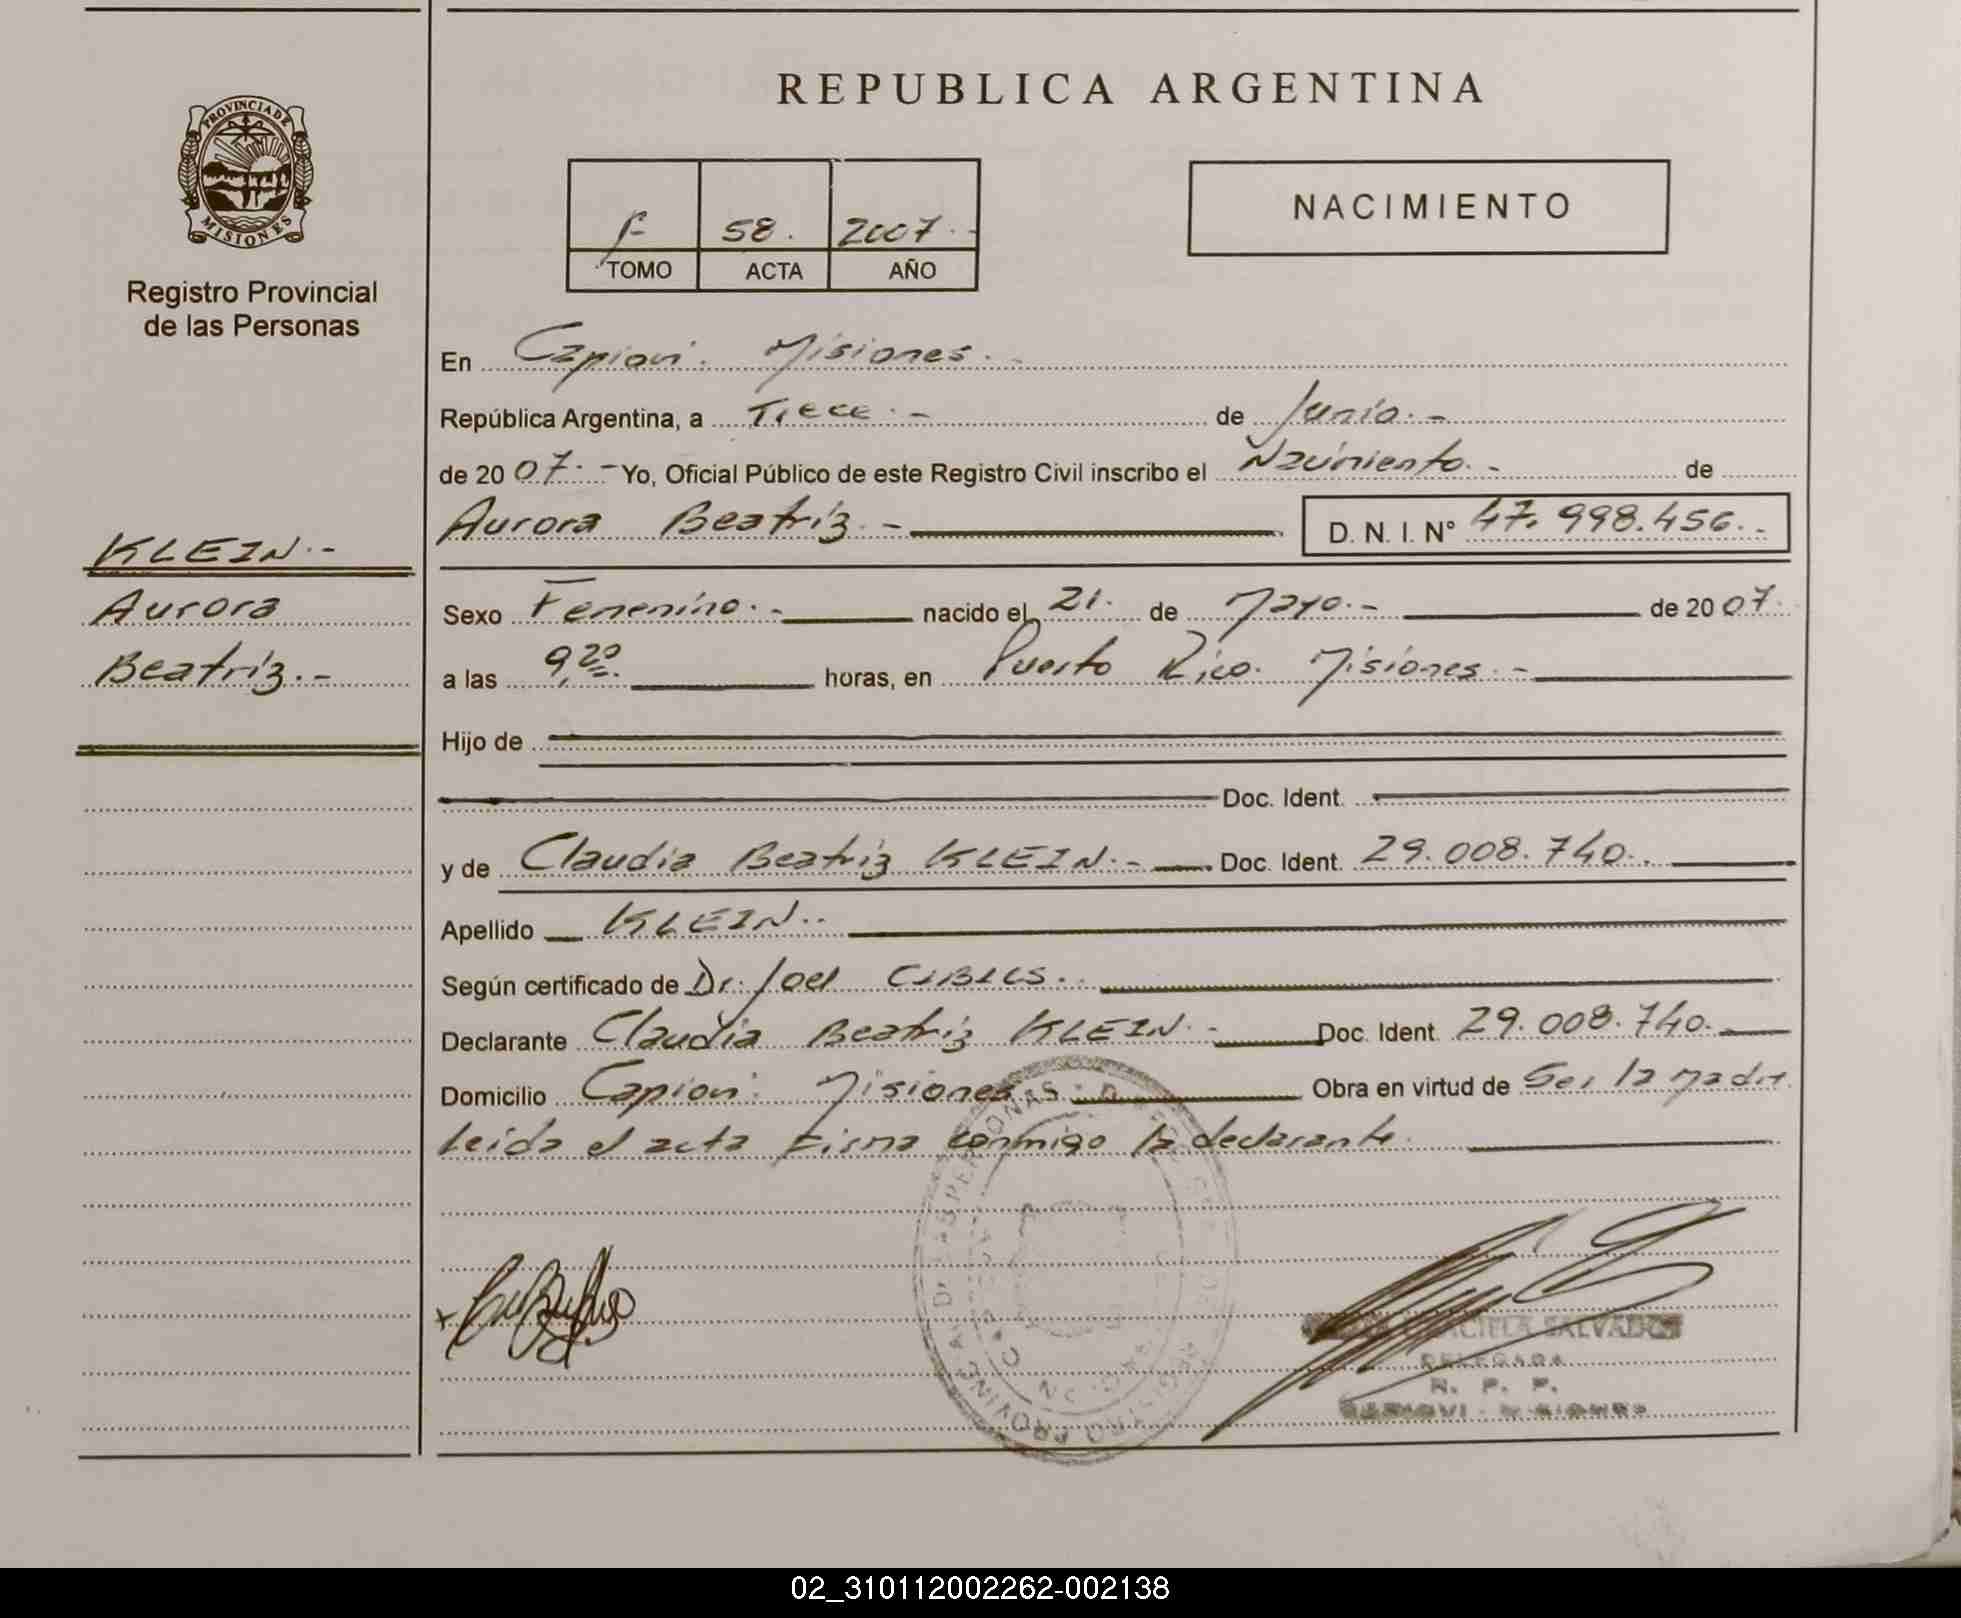 REPUBLICA ARGENTINA
PROVINCIA DE
MISIONES
Registro Provincial
de las Personas
NACIMIENTO
58. 2007.-
TOMO ACTA AÑO
En Capiovi. Misiones.-
República Argentina, a Trece.- de Junio.-
de 2007.- Yo, Oficial Público de este Registro Civil inscribo el Nacimiento.- de
Aurora Beatríz.- D. N. I. N° 47.998.456.-
KLEIN.-
Aurora
Beatríz.-
Sexo Femenino.- nacido el 21. de Mayo.- de 2007.
a las 9,20 horas, en Puerto Rico. Misiones.-
Hijo de
Doc. Ident.
y de Claudia Beatriz KLEIN.- Doc. Ident. 29.008.740.
Apellido KLEIN..
Según certificado de Dr. Joel
Declarante Claudia Beatriz KLEIN.- Doc. Ident. 29.008.740.
Domicilio Capiovi. Misiones Obra en virtud de Ser la madre
Leida el acta Firma conmigo la declarante.
GRACIELA SALVADOR
DELEGADA
R. P. P.
CAPIOVI - MISIONES
02_310112002262-002138